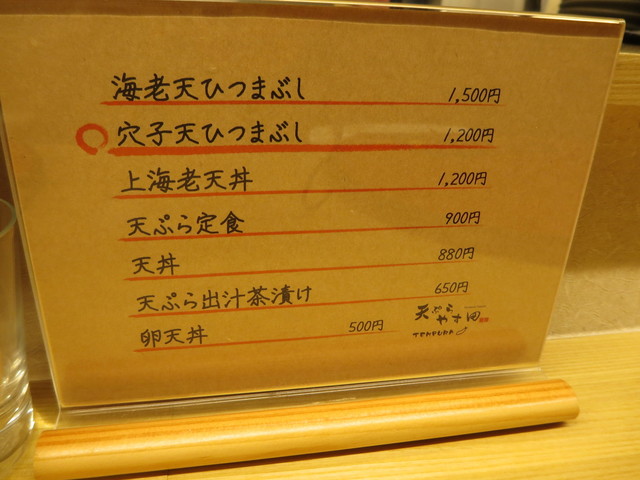 海老天ひつまぶし 1,500円
穴子天ひつまぶし 1,200円
上海老天丼 1,200円
天ぷら定食 900円
天丼 880円
天ぷら出汁茶漬け 650円
卵天丼 500円
天ぷら
やす田